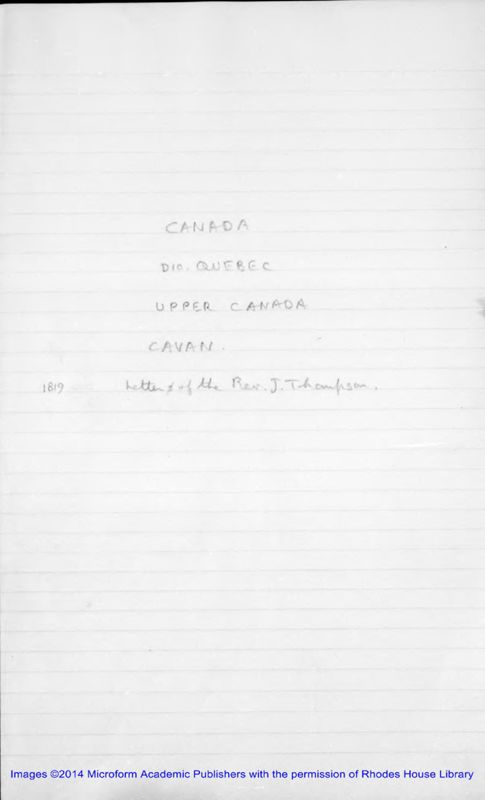 CANADA
DIO. QUEBEC
UPPER CANADA
CAVAN.
1819 Letter of the Rev. J. Thompson.
Images ©2014 Microform Academic Publishers with the permission of Rhodes House Library